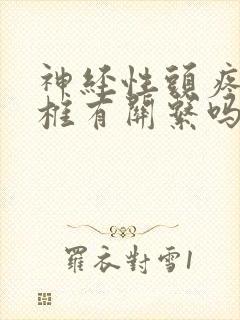 神經性頭疼
椎有關繫嗎
羅衣對雪1